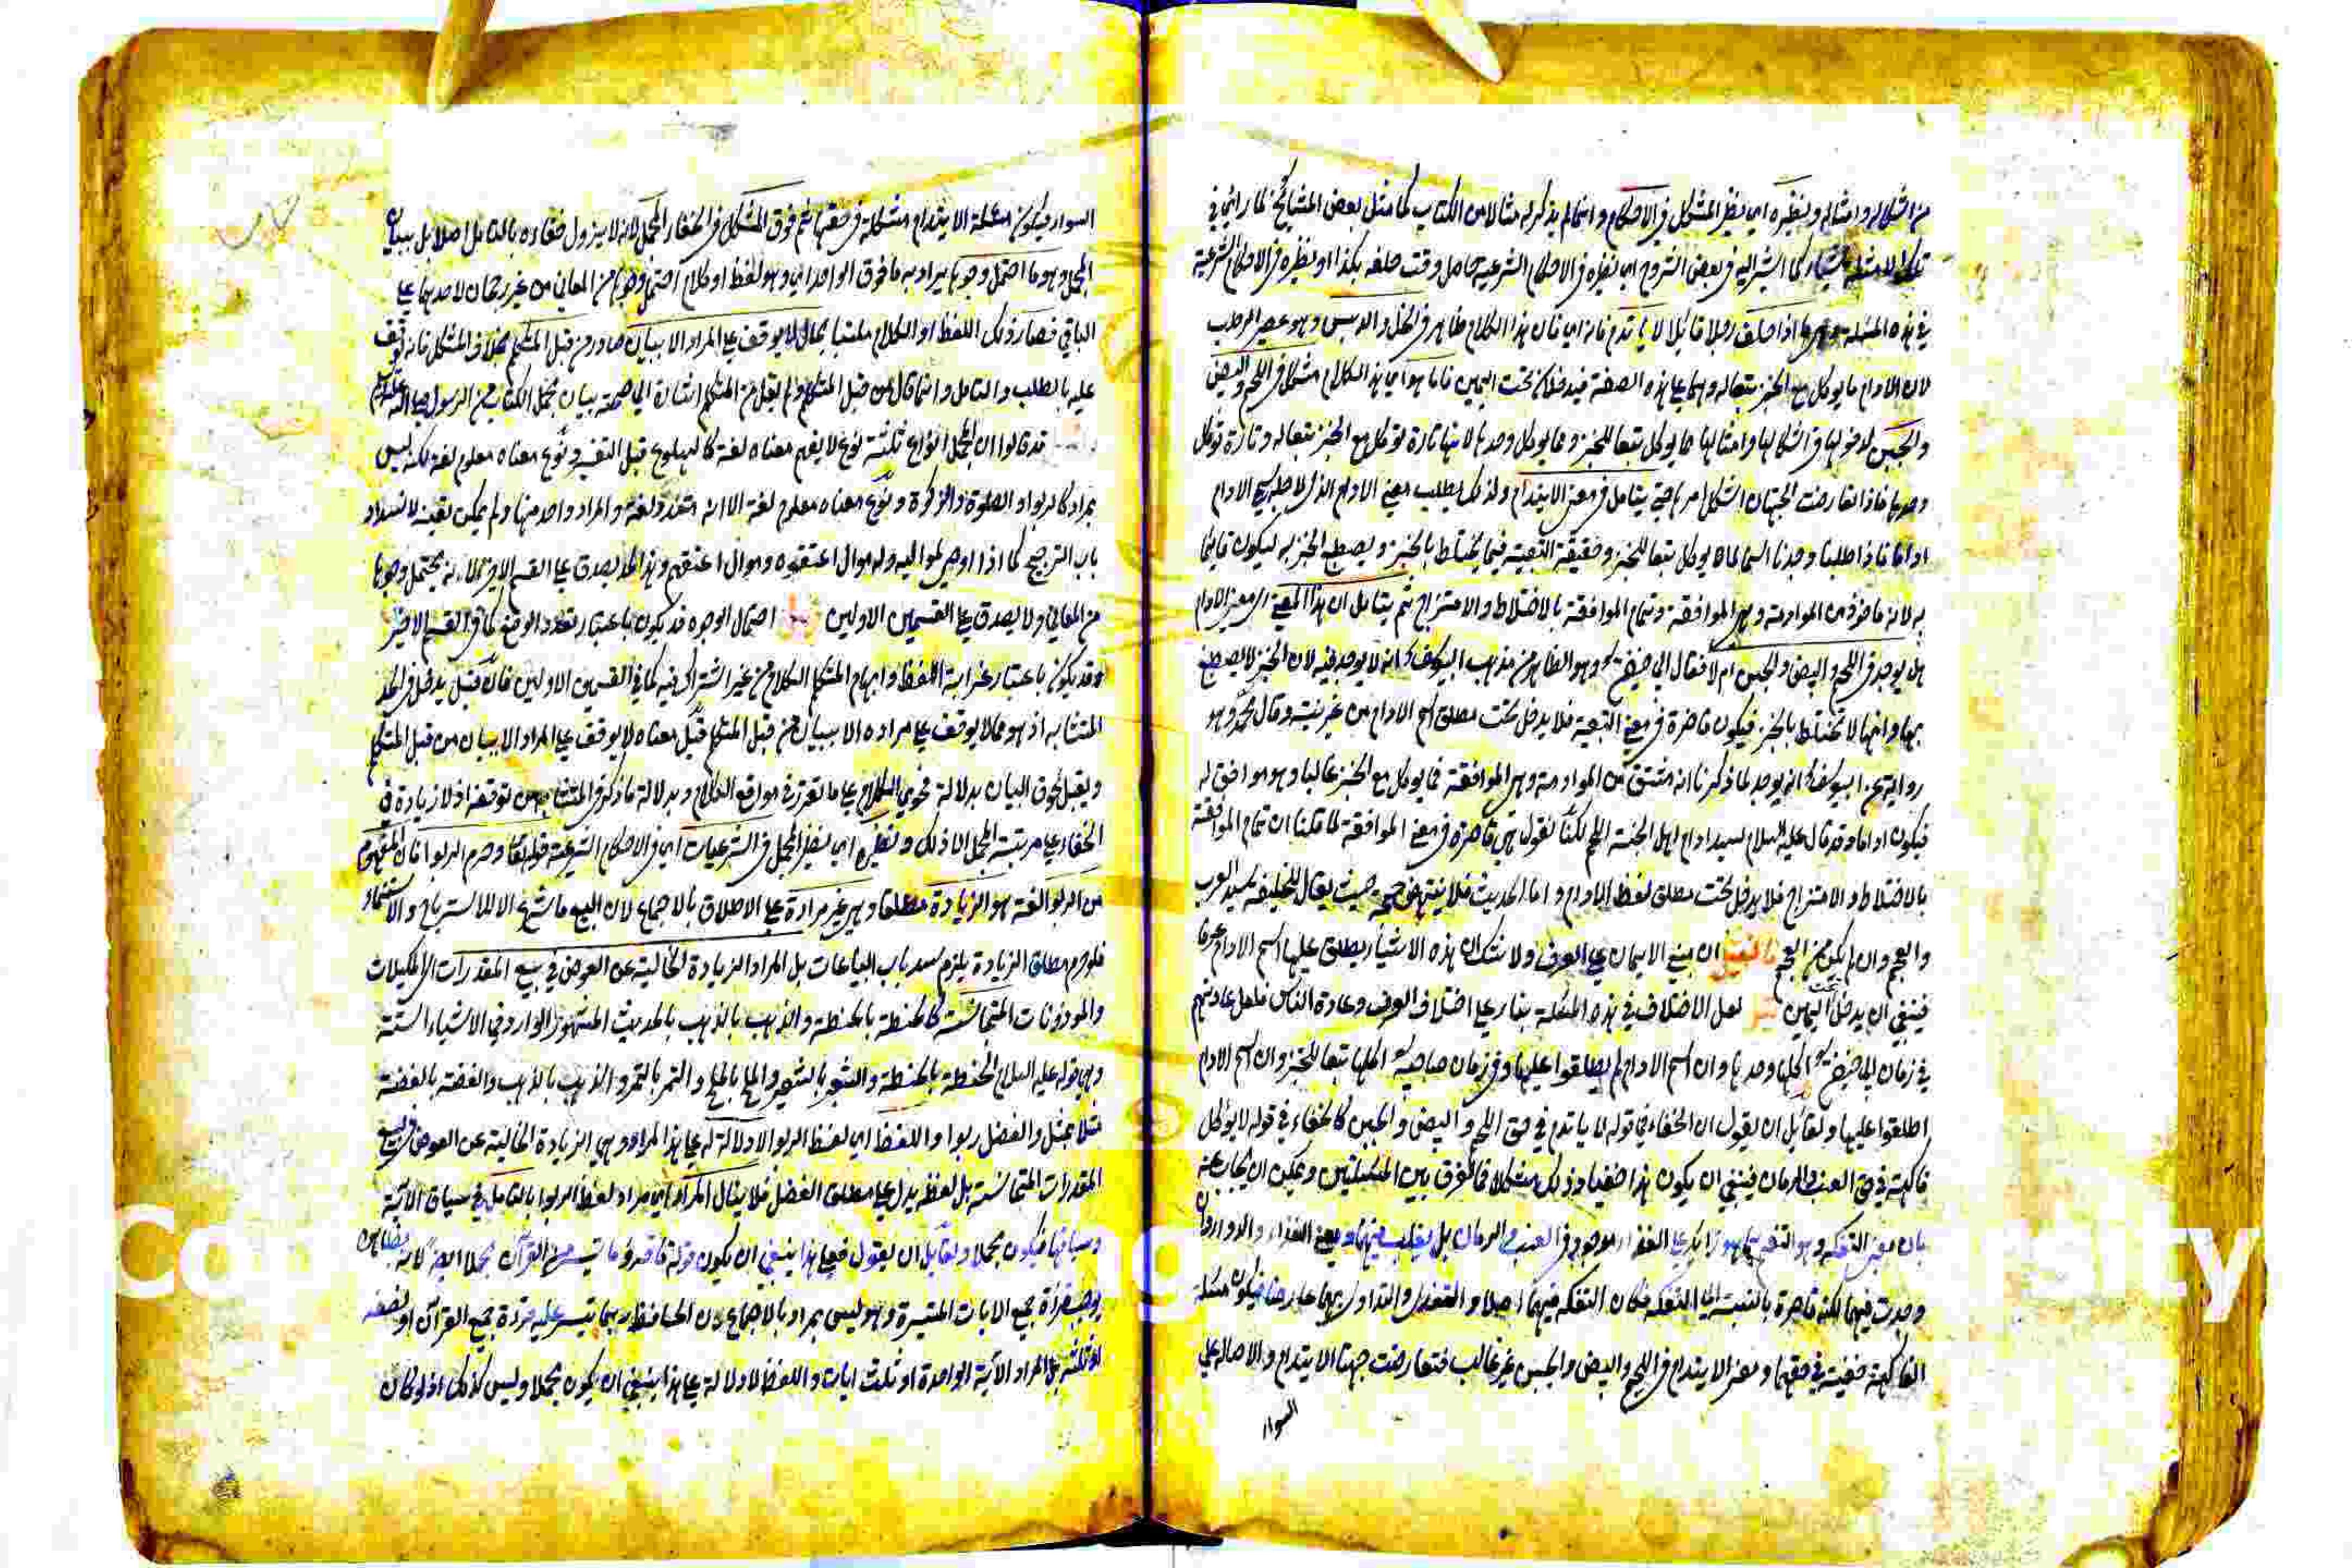 من اشكاله وامثاله ونظيره اى نظير المشكل فى الاحكام وانما لم يذكر له مثالا من الكتاب كما مثل بعض المشايخ لما رائ فى
تلك الامثلة كما اشير اليه فى بعض الشروح اى نظيره فى الاحكام الشرعية حاصل وقت حلفه بكذا او نظيره فى الاحكام الشرعية
فى هذه المسئلة وهى ما اذا حلف رجلا قائلا لا ياتدم فانه اى فان هذا الكلام ظاهر فى الخل والدبس وهو عصير الرطب
لان الادام ما يوكل مع الخبز تبعا له وهما على هذه الصفة فيدخلان تحت اليمين فاما هو اى هذا الكلام مشكل فى اللحم والبيض
والجبن لدخولها فى اشكالها وامثالها مما يوكل تبعا للخبز ومما يوكل وحدها لانها تارة توكل مع الخبز تبعا له وتارة توكل
وحدها فاذا تعارضت الجهتان اشكل امرها حتى يتامل فى معنى الايتدام ولذلك يطلب معنى الادام الذى لاجله سمى الادام
اداما فاذا طلبنا وجدنا اسما لما يوكل تبعا للخبز وحقيقة التبعية فيما يختلط بالخبز ويصطبغ الخبز به ليكون قائما
به لانه ماخوذ من الموادمة وهى الموافقة وتمام الموافقة بالاختلاط والامتزاج ثم يتامل ان هذا المعنى اى معنى الادام
هل يوجد فى اللحم والبيض والجبن ام لا فقال ابى حنيفة وهو الظاهر من مذهب ابى يوسف انه لا يوجد فيه لان الخبز لا يصطبغ
بها وانها لا تختلط بالخبز فيكون قاصرة فى معنى التبعية فلا يدخل تحت مطلق اسم الادام من غير نية وقال محمد وهو
رواية عن ابى يوسف انه يوجد لما ذكرنا انه مشتق من الموادمة وهى الموافقة فما يوكل مع الخبز غالبا وهو موافق له
فيكون اداما وقد قال عليه السلام سيد ادام اهل الجنة اللحم لكنا نقول هى قاصرة فى معنى الموافقة لما قلنا ان تمام الموافقة
بالاختلاط والامتزاج فلا يدخل تحت مطلق لفظ الادام واما الحديث فلا ينتهض حجة حيث يقال للخليفة سيد العرب
والعجم وان لم يكن من العجم فان قيل ان مبنى الايمان على العرف ولا شك ان هذه الاشياء يطلق عليها اسم الادام عرفا
فينبغى ان يدخل تحت اليمين قيل لعل الاختلاف فى هذه المسئلة بناء على اختلاف العرف وعادة الناس فلعل عادتهم
فى زمان ابى حنيفة اكلها وحدها وان اسم الادام لم يطلقوا عليها وفى زمان صاحبيه اكلها تبعا للخبز وان اسم الادام
اطلقوا عليها ولقائل ان يقول ان الخفاء فى قوله لا ياتدم فى حق اللحم والبيض والجبن كالخفاء فى قوله لا يوكل
فاكهة فى حق العنب والرمان فينبغى ان يكون هذا خفيا وذلك مشكلا فما الفرق بين المسئلتين ويمكن ان يجاب عنه
بان معنى التفكه وهو التنعم بما هو زائد على الغذاء موجود فى العنب والرمان بل يغلب فيهما ومعنى الغذاء والدواء وان
وجدت فيهما لكنه قاصرة بالنسبة الى التفكه فكان التفكه فيهما اصلا والتغذى والتداوى بهما عارضا فيكون مسئلة
الفاكهة خفية فى حقهما ومعنى الايتدام فى اللحم والبيض والجبن غير غالب فتعارضت جهتا الايتدام والاصالة على
السواء
السواء فيكون مسئلة الايتدام مشكلة فى حقها ثم فوق المشكل فى الخفاء المجمل لانه لا يزول خفاءه بالتامل اصلا بل ببيان
المجمل وهو ما احتمل وجوها يراد به ما فوق الواحد اى وهو لفظ او كلام احتمل وجوها من المعانى من غير رجحان لاحديها على
الباقى فصار ذلك اللفظ او الكلام ملتبسا بحال لا يوقف على المراد الا ببيان صادر من قبل المتكلم بخلاف المشكل فانه توقف
عليه بالطلب والتامل وانما قال من قبل المتكلم ولم يقل من المتكلم اشارة الى صحة بيان مجمل الكتاب من الرسول صلى الله عليه وسلم
قد قالوا ان المجمل انواع ثلثة نوع لا يفهم معناه لغة كالهلوع قبل التفسير ونوع معناه معلوم لغة لكنه ليس
بمراد كالربوا والصلوة والزكوة ونوع معناه معلوم لغة الا انه متعدد لغة والمراد واحد منها ولم يمكن تعيينه لانسداد
باب الترجيح كما اذا اوصى لمواليه وله موال اعتقوه وموال اعتقهم وهذا الحد يصدق على القسم الاخير لانه يحتمل وجوها
من المعانى ولا يصدق على القسمين الاولين احتمال الوجوه قد يكون باعتبار تعدد الوضع كما فى القسم الاخير
وقد يكون باعتبار غرابة اللفظ وابهام المتكلم الكلام من غير اشتراك فيه كما فى القسمين الاولين فان قيل يدخل فى الحد
المتشابه اذ هو مما لا يوقف على مراده الا ببيان من قبل المتكلم قيل معناه لا يوقف على المراد الا ببيان من قبل المتكلم
ويقبل لحوق البيان بدلالة فحوى الكلام على ما تقرر فى مواقع الكلام وبدلالة ما ذكر فى المتشابه من توقفه اذ لا زيادة فى
الخفاء على مرتبة المجمل الا ذلك ونظيره اى نظير المجمل فى الشرعيات اى فى الاحكام الشرعية قوله تعالى وحرم الربوا فان المفهوم
من الربوا لغة هو الزيادة مطلقا وهى غير مرادة على الاطلاق بالاجماع لان البيع ما شرع الا للاسترباح والاستنماء
فلو حرم مطلق الزيادة يلزم سد باب البياعات بل المراد الزيادة الخالية عن العوض فى بيع المقدرات اى المكيلات
والموزونات المتجانسة كالحنطة بالحنطة والذهب بالذهب بالحديث المشهور الوارد فى الاشياء الستة
وهى قوله عليه السلام الحنطة بالحنطة والشعير بالشعير والملح بالملح والتمر بالتمر والذهب بالذهب والفضة بالفضة
مثلا بمثل والفضل ربوا واللفظ اى لفظ الربوا لا دلالة له على هذا المراد وهى الزيادة الخالية عن العوض فى بيع
المقدرات المتجانسة بل لفظ يدل على مطلق الفضل فلا ينال المراد اى مراد لفظ الربوا بالتامل فى سياق الآية
وسباقها فيكون مجملا ولقائل ان يقول فعلى هذا ينبغى ان يكون قوله فاقرؤا ما تيسر من القرآن مجملا ايضا لانه بظاهره
يوجب قراة جميع الايات المتيسرة وهو ليس بمراد بالاجماع لان الحافظ ربما تيسر عليه قراءة جميع القرآن او نصفه
او ثلثه بل المراد الآية الواحدة او ثلث ايات واللفظ لا دلالة على هذا ينبغى ان يكون مجملا وليس كذلك اذ لو كان